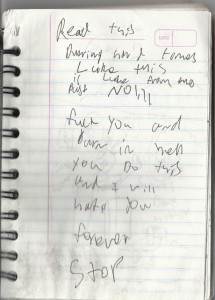 Read this
During hard times
Like this
is like from me
Just NO!!!
fuck you and
Burn in hell
you do this
and I will
hate you
forever
STOP